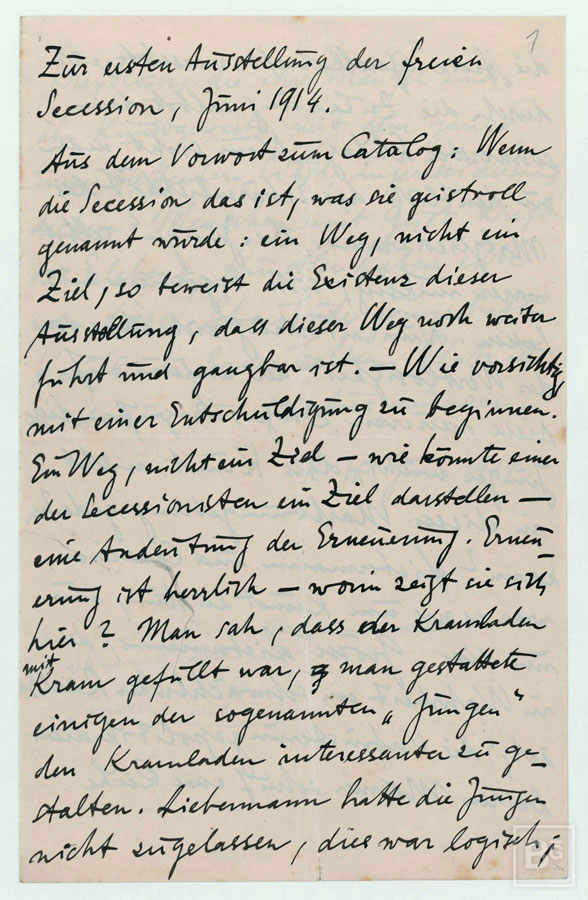 1
Zur ersten Ausstellung der freien
Secession, Juni 1914.
Aus dem Vorwort zum Catalog: Wenn
die Secession das ist, was sie geistvoll
genannt wurde: ein Weg, nicht ein
Ziel, so beweist die Existenz dieser
Ausstellung, dass dieser Weg noch weiter
führt und gangbar ist. — Wie vorsichtig
mit einer Entschuldigung zu beginnen.
Ein Weg, nicht ein Ziel — wie könnte einer
der Secessionisten ein Ziel darstellen —
eine Andeutung der Erneuerung. Erneu-
erung ist herrlich — worin zeigt sie sich
hier? Man sah, dass der Kramladen
mit
Kram gefüllt war, man gestattete
einigen der sogenannten „Jungen"
den Kramladen interessanter zu ge-
stalten. Liebermann hatte die Jungen
nicht zugelassen, dies war logisch;
BG